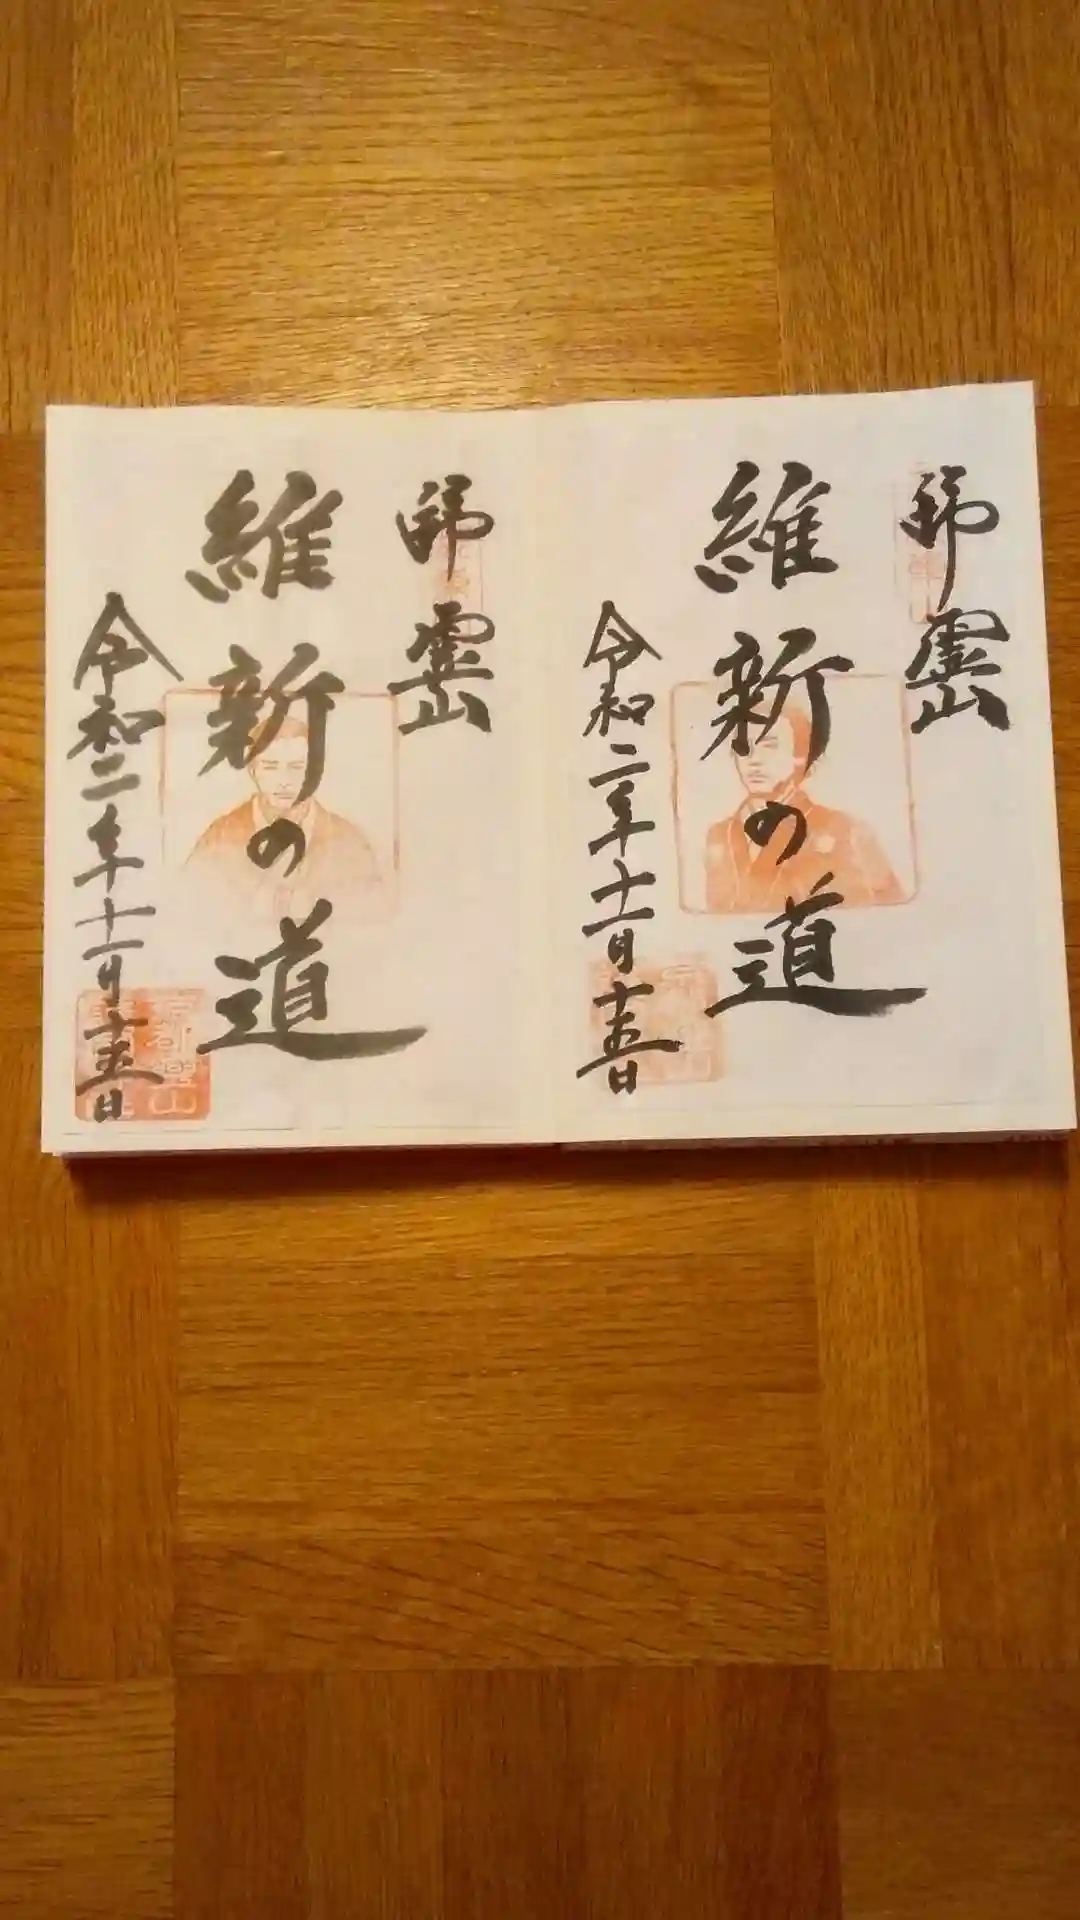 師霊山
維新の道
令和二年十一月十五日
師霊山
維新の道
令和二年十一月十五日